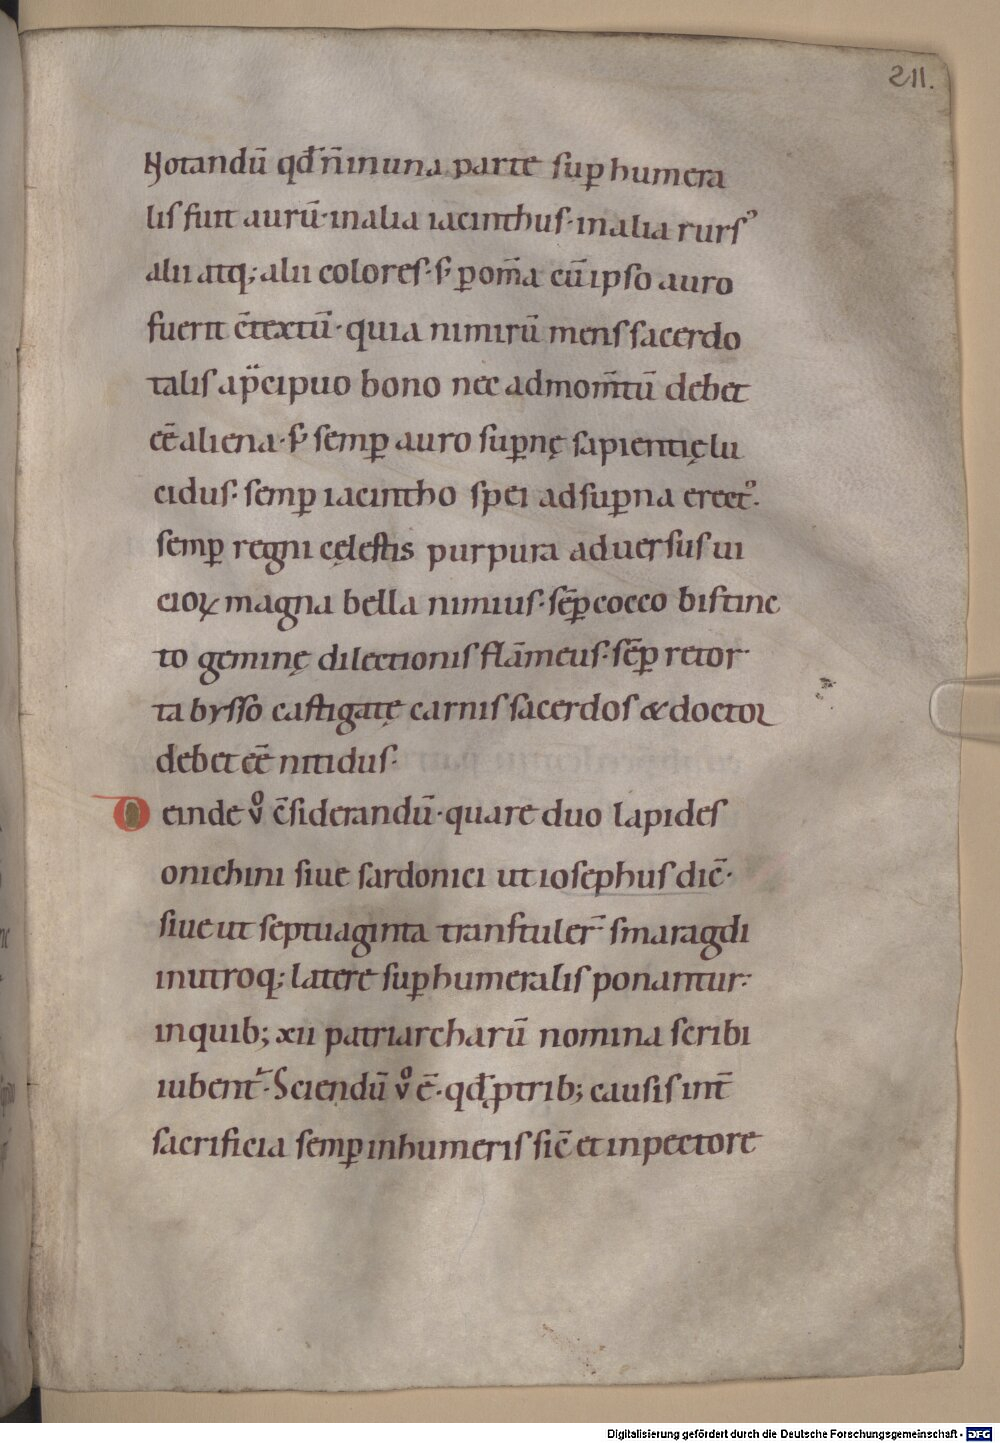 211.
Notandū qđ n̄ in una parte sup humera
lis fuit aurū· in alia iacinthus· in alia rurs᾽
alii atq; alii colores· s; p om̄a cū ipso auro
fuerit c̄textū· quia nimirū mens sacerdo
talis a p̄cipuo bono nec ad mom̄tū debet
eē aliena· s; semp auro supnę sapientię lu
cidus· semp iacintho spei ad supna erect᾽·
semp regni cęlestis purpura adversus ui
cioꝝ magna bella nimius· sēp cocco bistinc
to geminę dilectionis flāmeus· sēp retor
ta bysso castigatę carnis sacerdos & doctor
debet eē nitidus·
Deinde v̊ c̄siderandū· quare duo lapides
onichini siue sardonici ut iosephus dic̄·
siue ut septuaginta transtuler̄ smaragdi
in utroq; latere sup humeralis ponantur·
in quib; xii patriarcharū nomina scribi
iubent᾽· Sciendū v̊ ē· qđ ꝓ trib; causis int̄
sacrificia semp in humeris sic̄ et in pectore
Digitalisierung gefördert durch die Deutsche Forschungsgemeinschaft - DFG